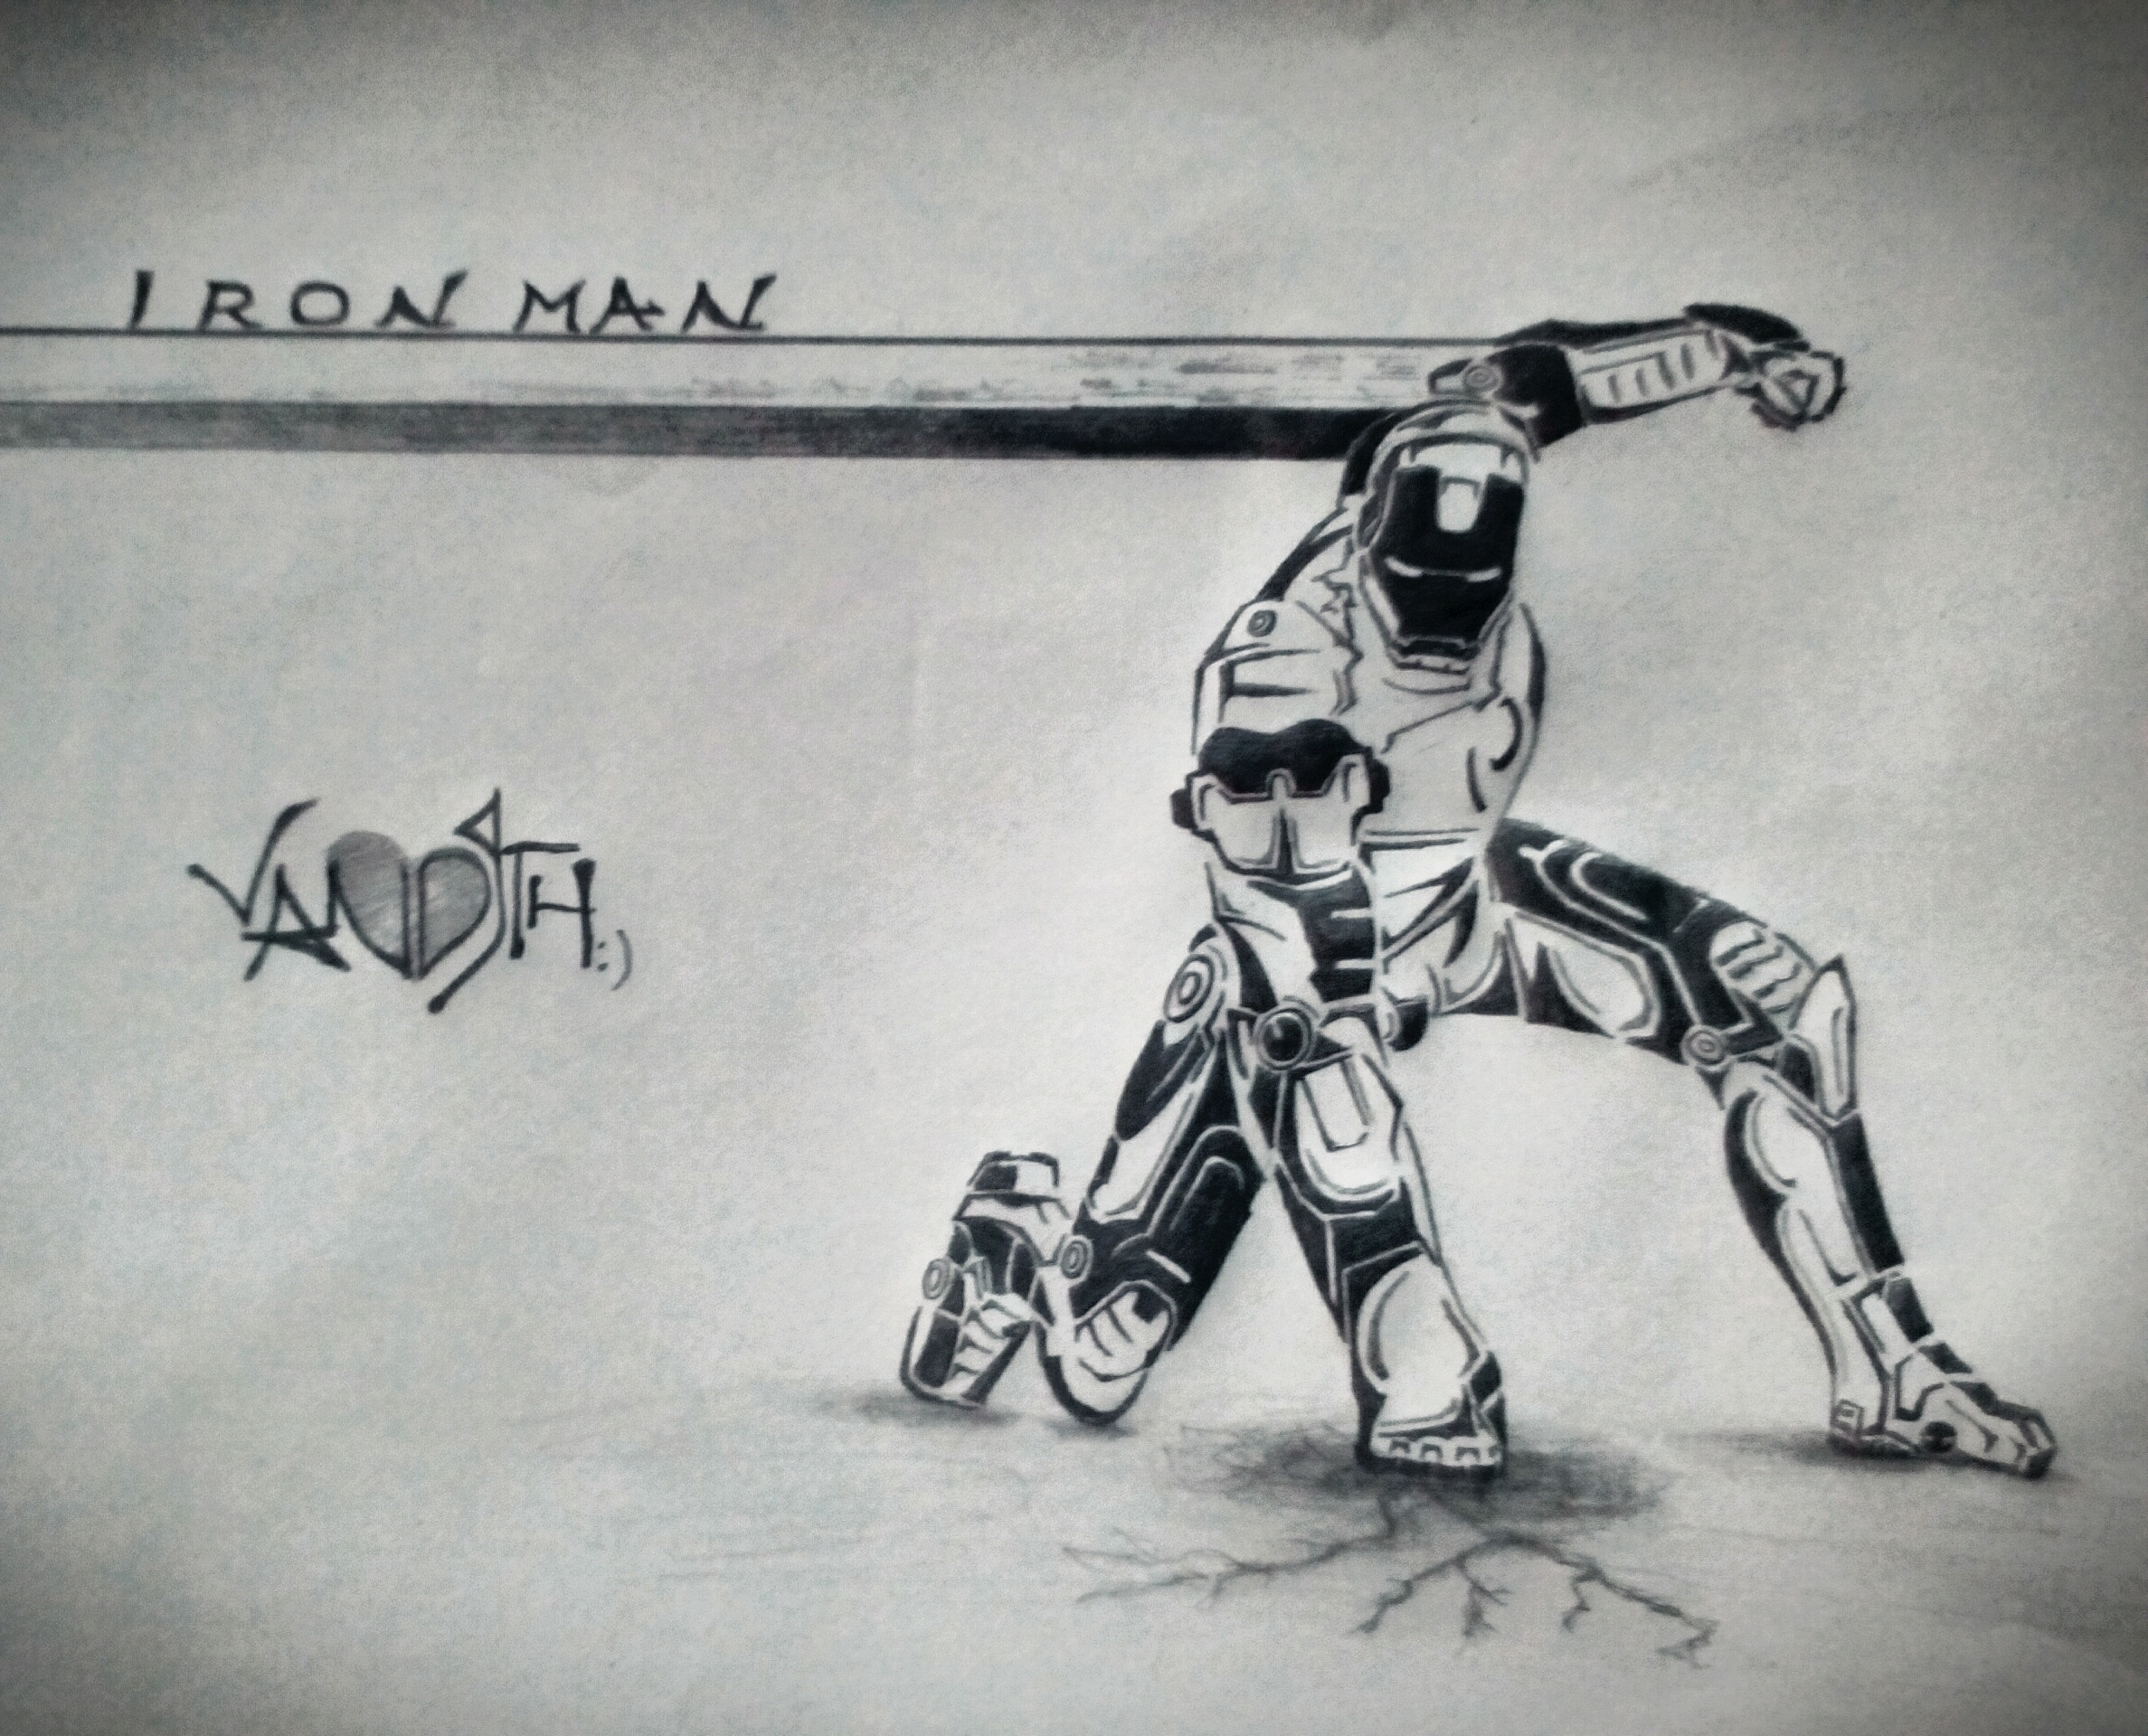 IRON MAN
VANDSTH :)